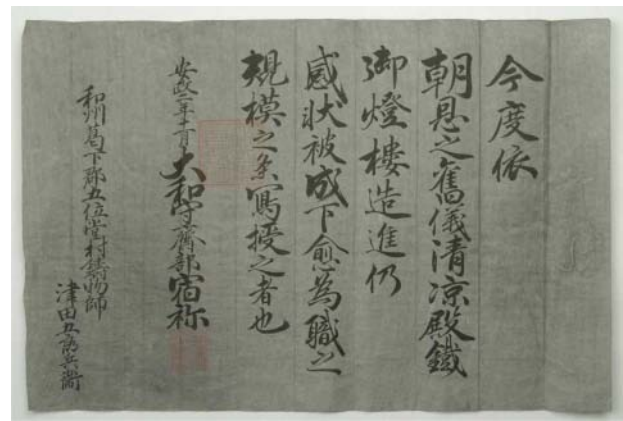 今度依
朝恩之舊儀清凉殿鐵
御燈樓造進仍
感状被成下愈為職之
規模之条寫授之者也
安政二年十一月 大和守齋部宿祢
和州葛下郡五位堂村鋳物師
津田五郎兵衛